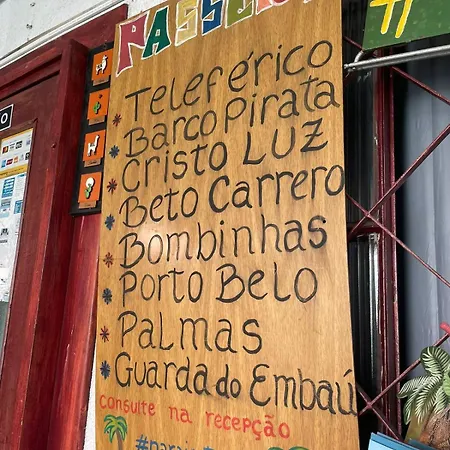 Teleférico
Barco Pirata
Cristo LUZ
Beto Carrero
Bombinhas
Porto Belo
Palmas
Guarda do Embaú
consulte na recepção